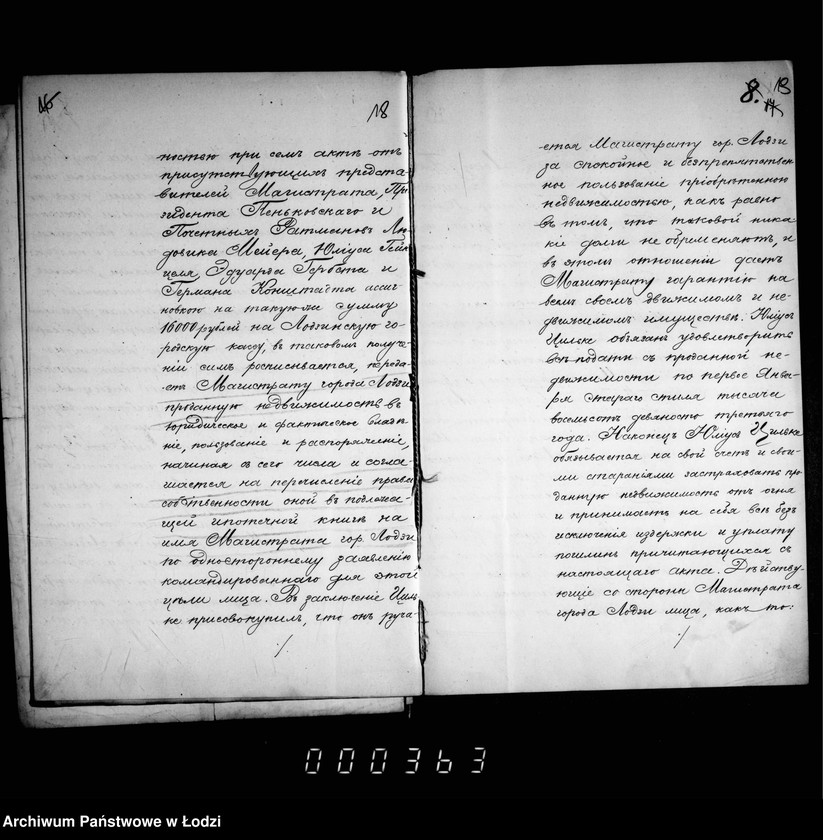 18
ностью при семъ актѣ отъ
присутствующихъ предста-
вителей Магистрата, Пре-
зидента Пеньковскаго и
Почетныхъ Ратмановъ Лю-
довика Мейера, Юліуса Гейн-
целя, Эдуарда Гербста и
Германа Конштадта ассиг-
новкою на такую же сумму
16000 рублей на Лодзинскую го-
родскую кассу, въ таковомъ получе-
ніи симъ росписывается, переда-
етъ Магистрату города Лодзи
проданную недвижимость въ
юридическое и фактическое владѣ-
ніе, пользованіе и распоряженіе,
начиная съ сего числа и согла-
шается на перечисленіе права
собственности оной въ подлежа-
щей ипотечной книгѣ на
имя Магистрата гор. Лодзи
по одностороннему заявленію
командированнаго для этой
цѣли лица. Въ заключеніе Циль-
ке присовокупилъ, что онъ руча-
./.
8. 13
ется Магистрату гор. Лодзи
за спокойное и безпрепятствен-
ное пользованіе пріобрѣтенною
недвижимостью, какъ равно
въ томъ, что таковой ника-
кіе долги не обременяютъ, и
въ этомъ отношеніи даетъ
Магистрату гарантію на
всемъ своемъ движимомъ и не-
движимомъ имуществѣ. Юліусъ
Цильке обязанъ удовлетворить
всѣ подати съ проданной не-
движимости по первое Янва-
ря стараго стиля тысяча
восемьсотъ девяносто третьяго
года. Наконецъ Юліусъ Цильке
обязывается на свой счетъ и свои-
ми стараніями застраховать про-
данную недвижимость отъ огня
и принимаетъ на себя всѣ безъ
исключенія издержки и уплату
пошлинъ причитающихся съ
настоящаго акта. Дѣйству-
ющіе со стороны Магистрата
города Лодзи лица, какъ то:
./.
000363
Archiwum Państwowe w Łodzi